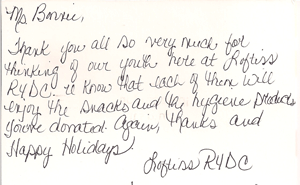 Ms Bonnie,
Thank you all so very much for
thinking of our youth here at Loftiss
RYDC. We know that each of them will
enjoy the snacks and the hygiene products
you've donated. Again, thanks and
Happy Holidays
Loftiss RYDC